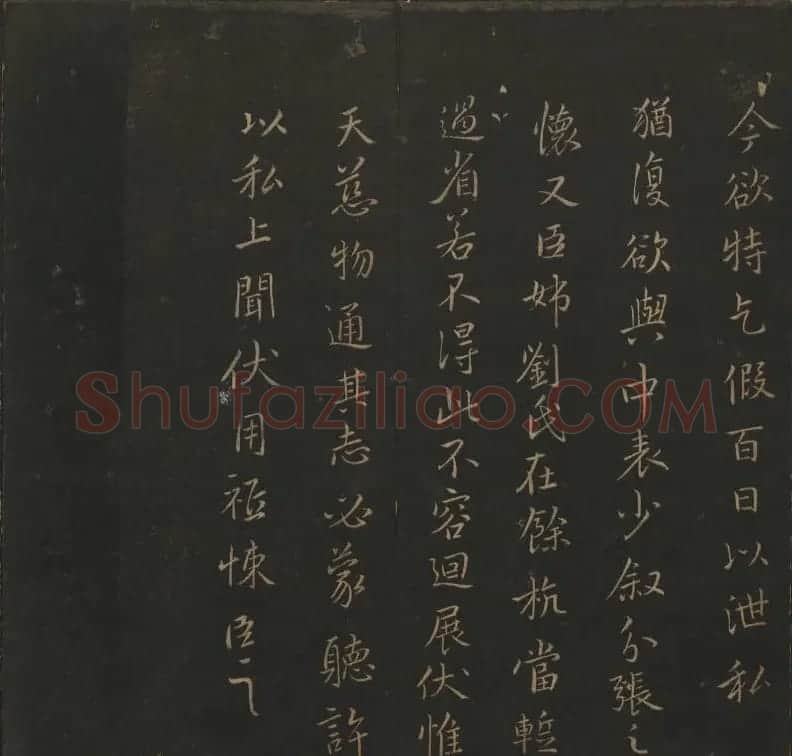 今欲特乞假百日以泄私
猶復欲與中表少叙分張之
懷又臣姊劉氏在餘杭當
過省若不得此不容迴展伏惟
天慈物通其志必蒙聽許
以私上聞伏用祗悚臣
Shufaziliao.COM